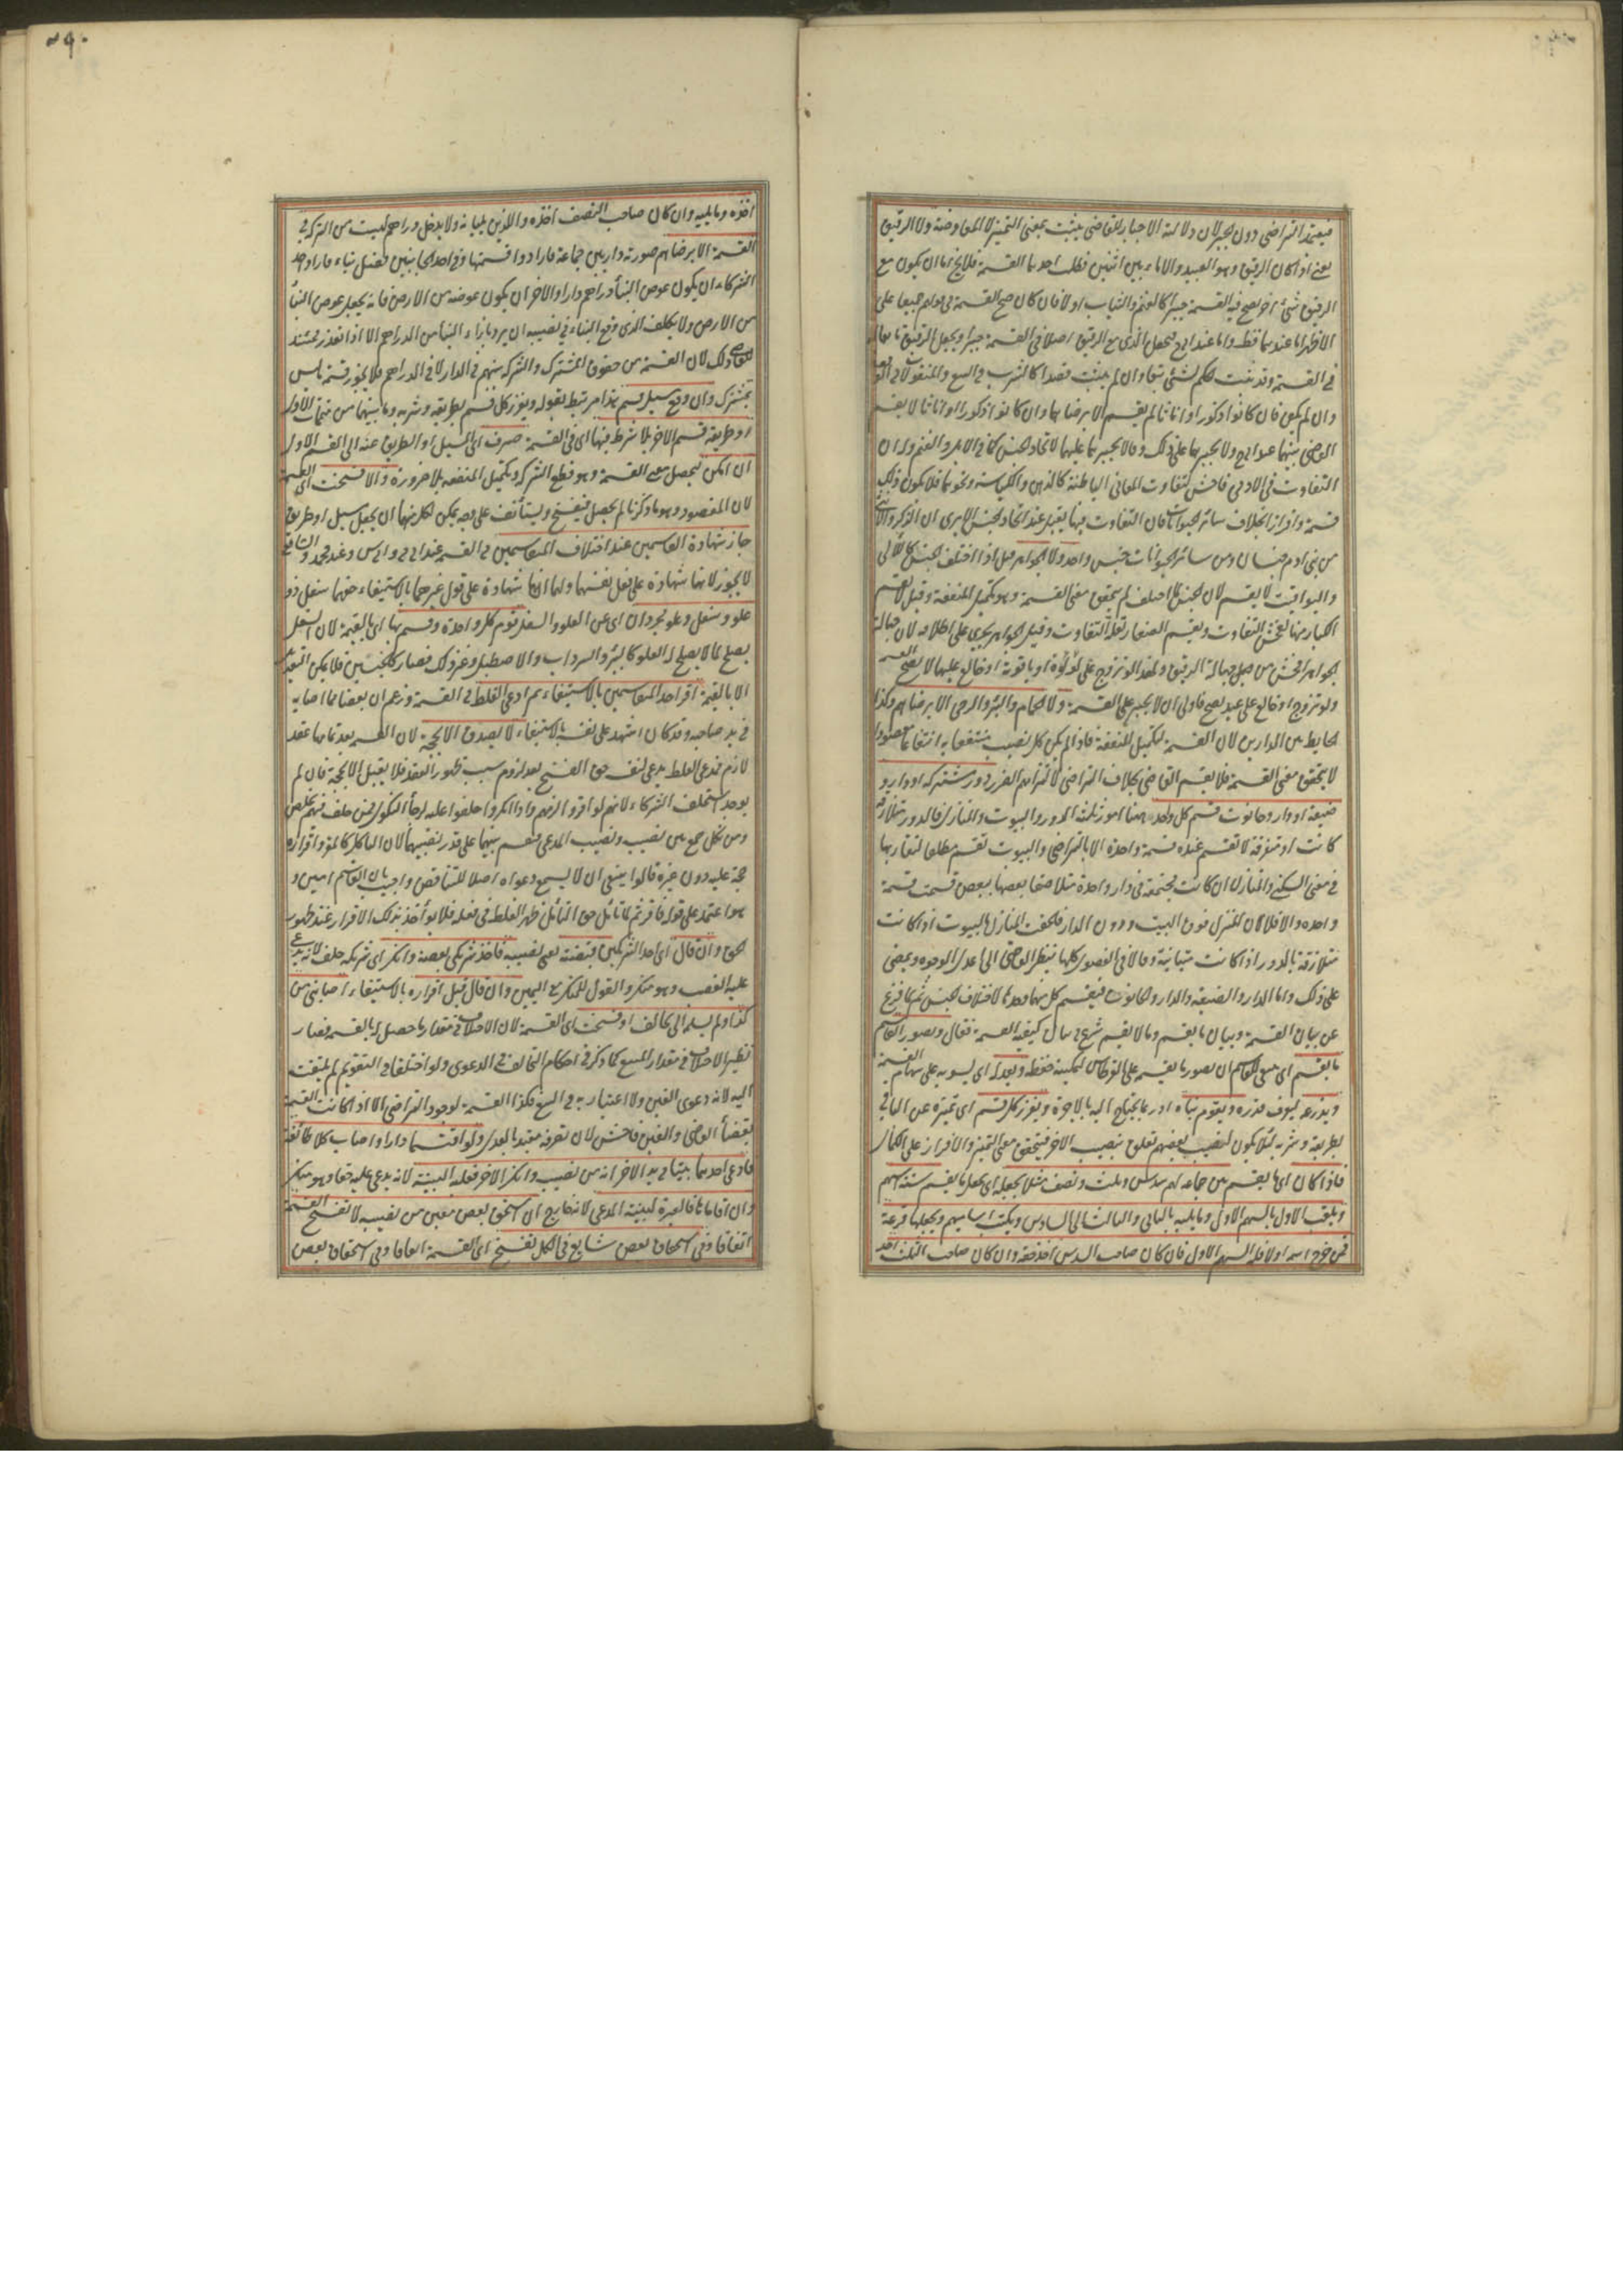 فيعتمد التراضي دون الجبر لان ولاية الاجبار للقاضي يثبت بمعنى التميز لا المعاوضة ولا الرقيق
يعني اذا كان الرقيق وهو العبيد والاماء بين اثنين فطلب احدهما القسمة فلا يخ اما ان يكون مع
الرقيق شئ اخر يصح فيه القسمة جبرا كالغنم والثياب اولا فان كان صح القسمة في قولهم جميعا على
الاظهر اما عندهما فظ واما عند ابي ح فيجعل الذي مع الرقيق اصلا في القسمة جبرا ويجعل الرقيق تابعا له
في القسمة وقد يثبت الحكم لشئ تبعا وان لم يثبت قصدا كالشرب في البيع والمنقولات في الوقف
وان لم يكن فان كانوا ذكورا او اناثا لم يقسم الا برضاهما وان كانوا ذكورا واناثا لا يقسم
القاضي بينهما عند ابي ح ولا يجبرهما على ذلك وقالا يجبرهما عليها لاتحاد الجنس كما في الابل والغنم وله ان
التفاوت في الادمي فاحش لتفاوت المعاني الباطنة كالذهن والكياسة ونحوهما فلا يكون ذلك
قسمة وافرازا بخلاف سائر الحيوانات فان التفاوت فيها يقل عند اتحاد الجنس الا يرى ان الذكر والانثى
من بني ادم جنسان ومن سائر الحيوانات جنس واحد ولا الجواهر قيل اذا اختلف الجنس كاللآلي
واليواقيت لا يقسم لان الجنس لما اختلف لم يتحقق معنى القسمة وهو تكميل المنفعة وقيل لا يقسم
الكبار منها لفحش التفاوت ويقسم الصغار لقلة التفاوت وقيل الجواهر يجري على اطلاقه لان جهالة
الجواهر افحش من جهالة الرقيق ولهذا لو تزوج على لؤلؤة او ياقوتة او خالع عليها لا يصح التسمية
ولو تزوج او خالع على عبد يصح فاولى ان لا يجبر على القسمة ولا الحمام والبئر والرحى الا برضاهم وكذا
الحايط بين الدارين لان القسمة لتكميل المنفعة فاذا لم يكن كل نصيب منتفعا به انتفاعا مقصودا
لا يتحقق معنى القسمة فلا يقسم القاضي بخلاف التراضي لالتزامهم الضرر دور مشتركة او دار و
ضيعة او دار وحانوت قسم كل وحده ههنا امور ثلثة الدور والبيوت والمنازل فالدور متلازقة
كانت او متفرقة لا تقسم عنده قسمة واحدة الا بالتراضي والبيوت تقسم مطلقا لتقاربها
في معنى السكنى والمنازل ان كانت مجتمعة في دار واحدة متلاصقا بعضها ببعض قسمت قسمة
واحدة والا فلا لان المنزل فوق البيت ودون الدار فالحقت المنازل بالبيوت اذا كانت
متلازقة بالدور اذا كانت متباينة وقالا في الفصول كلها ينظر القاضي الى اعدل الوجوه ويمضي
على ذلك واما الدار والضيعة والدار والحانوت فيقسم كل منهما وحدها لاختلاف الجنس ثم لما فرغ
عن بيان القسمة وبيان ما يقسم وما لا يقسم شرع في بيان كيفية القسمة فقال ويصور القاسم
ما يقسم اي ينبغي للقاسم ان يصور ما يقسمه على القرطاس ليمكنه حفظه ويعدله اي يسويه على سهام القسمة
ويذرعه ليعرف قدره ويقوم بناه اذ ربما يحتاج اليه بالاخرة ويفرز كل قسم اي يميزه عن الباقي
بطريقه وشربه لئلا يكون لنصيب بعضهم تعلق بنصيب الاخر فيتحقق معنى التميز والافراز على الكمال
فاذا كان اي ما يقسم بين جماعة لهم سدس وثلث ونصف مثلا يجعله اي يجعل ما يقسم ستة اسهم
ويلقب الاول بالسهم الاول وما يليه بالثاني والثالث الى السادس ويكتب اساميهم ويجعلها قرعة
فمن خرج اسمه اولا فله السهم الاول فان كان صاحب السدس اخذ حقه وان كان صاحب الثلث اخذ
اخذه وما يليه وان كان صاحب النصف اخذه واللذين يليانه ولا يدخل دراهم ليست من التركة في
القسمة الا برضاهم صورته دار بين جماعة فارادوا قسمتها وفي احد الجانبين فضل بناء فاراد احد
الشركاء ان يكون عوض البناء دراهم واراد الاخر ان يكون عوضه من الارض فانه يجعل عوض البناء
من الارض ولا يكلف الذي وقع البناء في نصيبه ان يرد بازاء البناء من الدراهم الا اذا تعذر فحينئذ
للقاضي ذلك لان القسمة من حقوق المشترك والشركة بينهم في الدار لا في الدراهم فلا يجوز قسمة ما ليس
بمشترك وان وقع سبيل قسم هذا مرتبط بقوله ويفرز كل قسم بطريقه وشربه وما بينهما من تتمات الاول
او طريقه قسم الاخر بلا شرط فيها اي في القسمة صرف اي المسيل او الطريق عنه الى القسم الاول
ان امكن ليحصل معنى القسمة وهو قطع الشركة وتكميل المنفعة بلا ضرورة والا فسخت اي القسمة
لان المقصود وهو ما ذكرنا لم يحصل فيفسخ ويستأنف على وجه يمكن لكل منهما ان يجعل سبيل او طريق
جاز شهادة القاسمين عند اختلاف المتقاسمين في القسمة عند ابي ح وابي س وعند محمد والشافعي
لا يجوز لانها شهادة على فعل نفسهما ولهما انها شهادة على قول غيرهما بالاستيفاء حقهما سفل ذو
علو وسفل وعلو مجردان اي عن العلو والسفل قوم كل واحدة وقسم بها اي بالقيمة لان السفل
يصلح لما لا يصلح له العلو كالبئر والسرداب والاصطبل وغير ذلك فصار كالجنسين فلا يمكن التعديل
الا بالقيمة اقر احد المتقاسمين بالاستيفاء ثم ادعى الغلط في القسمة وزعم ان بعضا مما اصابه
في يد صاحبه وقد كان اشهد على نفسه بالاستيفاء لا يصدق الا بالحجة لان القسمة بعد تمامها عقد
لازم فمدعي الغلط يدعي لنفسه حق الفسخ بعد لزوم سبب ظهور العقد فلا يقبل الا بالحجة فان لم
يوجد استحلف الشركاء لانهم لو اقروا لزمهم واذا انكروا حلفوا عليه لرجاء النكول فمن حلف منهم تخلص
ومن نكل جمع بين نصيبه ونصيب المدعي فيقسم بينهما على قدر نصيبهما لان الناكل كالمقر واقراره
حجة عليه دون غيره قالوا ينبغي ان لا يسمع دعواه اصلا للتناقض واجيب بان القاسم امين و
هو اعتمد على قوله فاقر ثم لما تأمل حق التأمل ظهر الغلط في فعله فلا يؤاخذ بذلك الاقرار عند ظهور
الحق وان قال اي احد الشريكين قبضته يعني نصيبه فاخذ شريكي بعضه وانكر اي شريكه حلف لانه يدعي
عليه الغصب وهو منكر والقول للمنكر مع اليمين وان قال قبل اقراره بالاستيفاء اصابني من
كذا ولم يسلم الي تحالفا وفسخت اي القسمة لان الاختلاف في مقدار ما حصل له بالقسمة فصار
نظير الاختلاف في مقدار المبيع كما ذكر في احكام التحالف في الدعوى ولو اختلفا في التقويم لم يلتفت
اليه لانه دعوى الغبن ولا اعتبار به في البيع فكذا القسمة لوجود التراضي الا اذا كانت القسمة
بقضاء القاضي والغبن فاحش لان تصرفه مقيد بالعدل ولو اقتسما دارا واصاب كلا طائفة
فادعى احدهما بيتا في يد الاخر انه من نصيبه وانكر الاخر فعليه البينة لانه يدعي عليه حقا وهو منكر
وان اقاماها فالعبرة لبينة المدعي لانه خارج ان استحق بعض معين من نصيبه لا تفسخ القسمة
اتفاقا وفي استحقاق بعض شايع في الكل تفسخ اي القسمة اتفاقا وفي استحقاق بعض